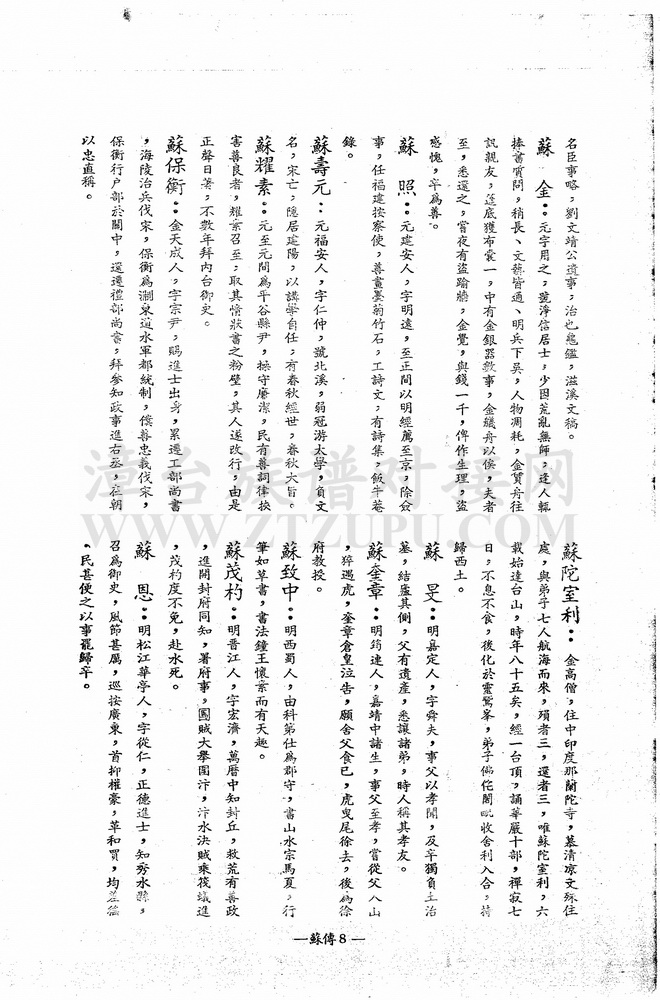 名臣事略，劉文靖公遺事，治世龜鑑，滋溪文稿。
蘇　金：元字用之，號淨信居士，少因荒亂無師，逢人輒
捧書質問，稍長、文藝皆通、明兵下吳，人物凋耗，金買舟往
訊親友，蓬底獲布囊一，中有金銀器數事，金艤舟以俟，失者
至，悉還之，嘗夜有盜踰牆，金覺，與錢一千，俾作生理，盜
感愧，卒為善。
蘇　照：元建安人，字明遠，至正間以明經薦至京，除僉
事，任福建按察使，善畫墨菊竹石，工詩文，有詩集，飯牛菴
錄。
蘇壽元：元福安人，字仁仲，號北溪，弱冠游太學，負文
名，宋亡，隱居建陽，以講學自任，有春秋經世，春秋大旨。
蘇耀素：元至元間為平谷縣尹，操守廉潔，民有善詞律挾
害善良者，耀素召至，取其情狀書之粉壁，其人遂改行，由是
正聲日著，不數年拜內台御史。
蘇保衡：金天成人，字宗尹，賜進士出身，累遷工部尚書
，海陵治兵伐宋，保衡為浙東道水軍都統制，僕善忠義伐宋，
保衡行戶部於關中，還遷禮部尚書，拜參知政事進右丞，在朝
以忠直稱。
蘇陀室利：金高僧，住中印度那蘭陀寺，慕清凉文殊住
處，與弟子七人航海而來，殞者三，還者三，唯蘇陀室利，六
載始達台山，時年八十五矣，經一台頂，誦華嚴十部，禪寂七
日，不息不食，後化於靈鷲峯，弟子佛佗闍毗收舍利入合，持
歸西土。
蘇　旻：明嘉定人，字舜夫，事父以孝聞，及卒獨負土治
墓，結廬其側，父有遺產，悉讓諸弟，時人稱其孝友。
蘇奎章：明筠連人，嘉靖中諸生，事父至孝，嘗從父入山
，猝遇虎，奎章倉皇泣告，願舍父食己，虎曳尾徐去，後為徐
府教授。
蘇致中：明西蜀人，由科第仕為郡守，畫山水宗馬夏，行
筆如草書，書法鐘王懷素而有天趣。
蘇茂杓：明晉江人，字宏濟，萬曆中知封丘，救荒有善政
，進開封府同知，署府事，團賊大舉圍汴，汴水決賊乘筏蟻進
，茂杓度不免，赴水死。
蘇　恩：明松江華亭人，字從仁，正德進士，知秀水縣，
召為御史，風節甚厲，巡按廣東，首抑權豪，革和買，均差徭
，民甚便之以事罷歸卒。
—蘇傳8—
漳台族谱对接网
WWW.ZTZUPU.COM